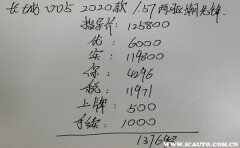 长城VV5 2020款 1.5T 两驱潮先锋
指导价：125800
优：6000
实：119800
保：4296
税：11971
上牌：500
手续：1000
1376
www.icauto.com.cn